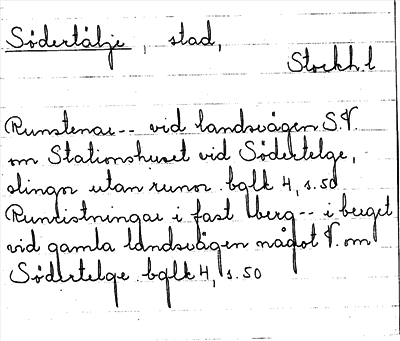 Södertälje, stad,
Stockh.l
Runstenar -- vid landsvägen S.V.
om Stationshuset vid Södertelge,
slingor utan runor. bglk 4, s. 50
Runristningar i fast berg -- i berget
vid gamla landsvägen något V. om
Södertelge. bglk 4, s. 50